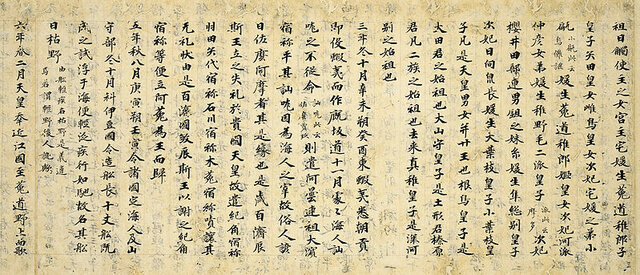 祖日觸使主之女宮主宅媛生菟道稚郎子
皇子矢田皇女雌鳥皇女次妃宅媛之弟小
甂媛生菟道稚郎姬皇女次妃河派
仲彥女弟媛生稚野毛二派皇子 次妃
櫻井田部連男鉏之妹糸媛生隼總別皇子
次妃日向泉長媛生大葉枝皇子小葉枝皇
子凡是天皇男女并廿王也根鳥皇子是
大田君之始祖也大山守皇子是土形君榛原
君凡二族之始祖也去來真稚皇子是深河
別之始祖也
三年冬十月辛未朔癸酉東蝦夷悉朝貢
即役蝦夷而作厩坂道十一月處々海人訕
哤之不從命 則遣阿曇連祖大濱
宿祢平其訕哤因為海人之宰故俗人諺
曰佐麼阿摩者其是緣也是歲百濟辰
斯王立之失礼於貴國天皇故遣紀角宿祢
羽田矢代宿祢石川宿祢木菟宿祢嘖讓其
无礼狀由是百濟國殺辰斯王以謝之紀角
宿祢等便立阿花為王而歸
五年秋八月庚寅朔壬寅令諸國定海人及山
守部冬十月科伊豆國令造船長十丈船既
成之試浮于海便輕泛疾行如馳故名其船
曰枯野 由船輕疾名枯野是義違焉若謂輕野後人訛歟
六年春二月天皇幸近江國至菟道野上而歌